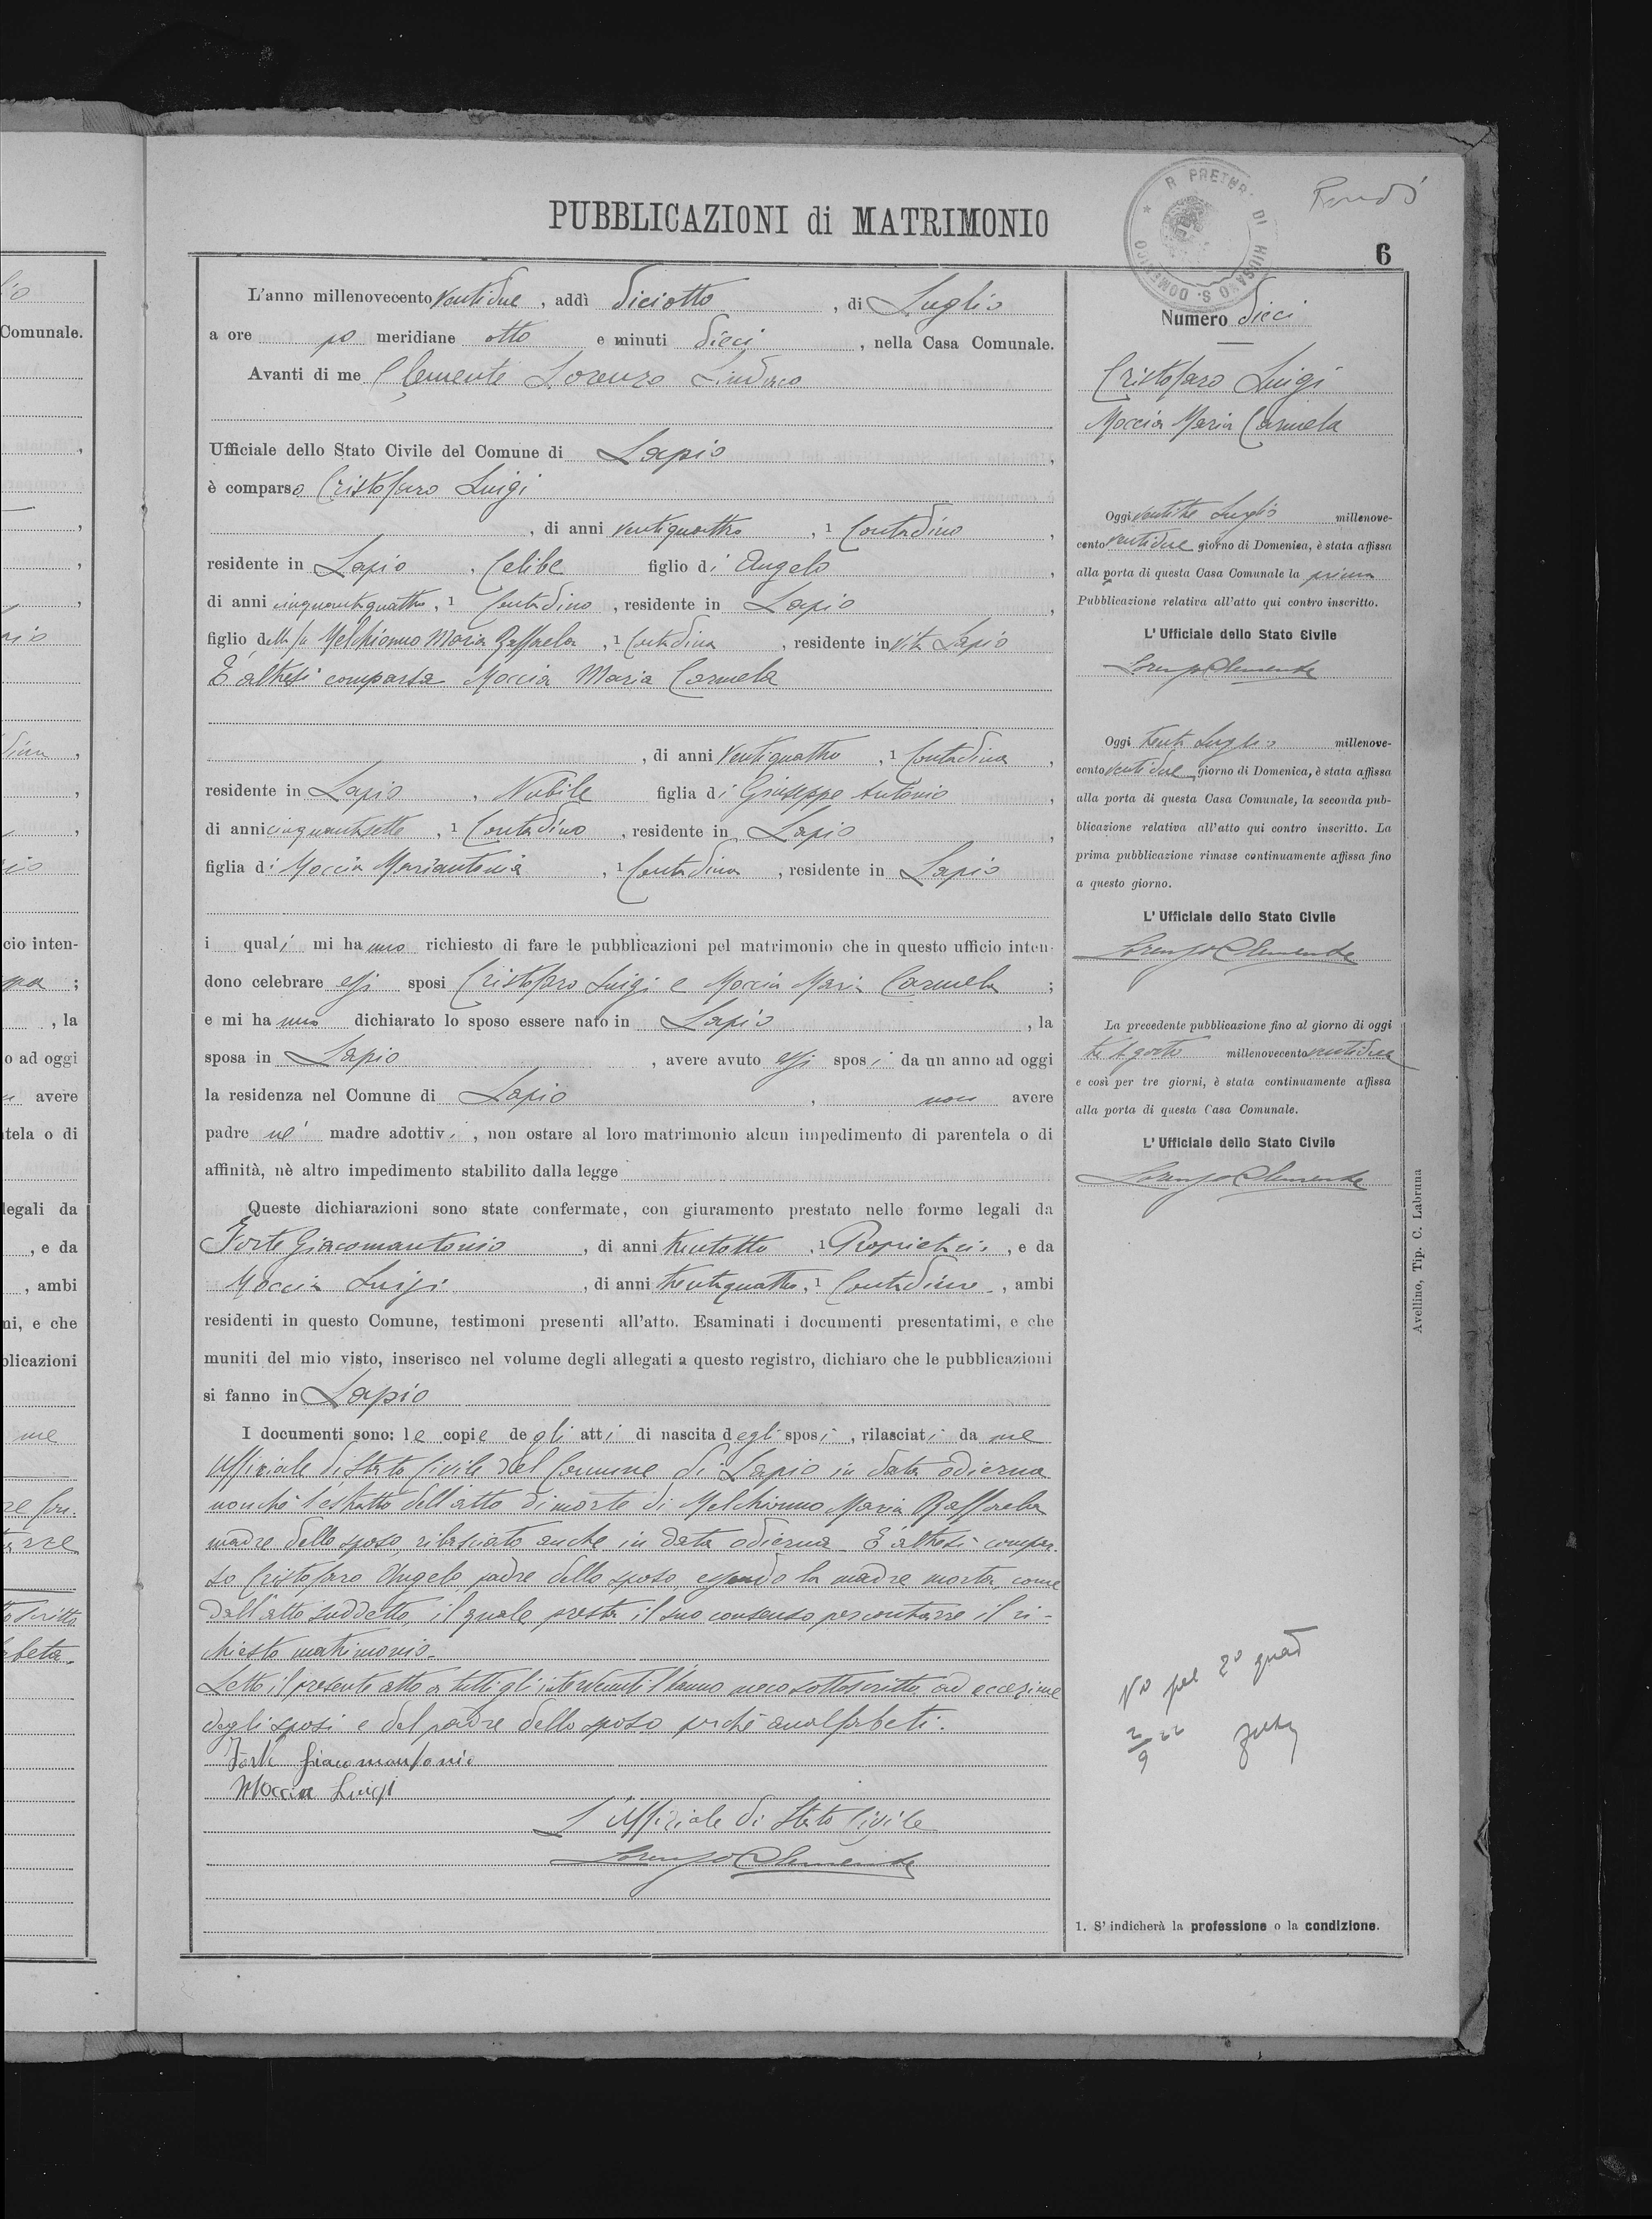 PUBBLICAZIONI di MATRIMONIO
R PRETUR DI CHIUSANO S. DOMENICO
6
L'anno millenovecento ventidue, addì diciotto, di Luglio
a ore po meridiane otto e minuti dieci, nella Casa Comunale.
Avanti di me Clemente Lorenzo Sindaco
Ufficiale dello Stato Civile del Comune di Lapio,
è comparso Cristofaro Luigi
, di anni ventiquattro, 1 Contadino,
residente in Lapio, Celibe figlio di Angelo,
di anni cinquantaquattro, 1 Contadino, residente in Lapio,
figlio della fu Melchionno Maria Raffaela, 1 Contadina, residente in vita Lapio
È altresì comparsa Moccia Maria Carmela
, di anni ventiquattro, 1 Contadina,
residente in Lapio, Nubile figlia di Giuseppe Antonio,
di anni cinquantasette, 1 Contadino, residente in Lapio,
figlia di Moccia Mariantonia, 1 Contadina, residente in Lapio
i quali mi hanno richiesto di fare le pubblicazioni pel matrimonio che in questo ufficio inten-
dono celebrare essi sposi Cristofaro Luigi e Moccia Maria Carmela;
e mi hanno dichiarato lo sposo essere nato in Lapio, la
sposa in Lapio, avere avuto essi sposi da un anno ad oggi
la residenza nel Comune di Lapio, non avere
padre nè madre adottivi, non ostare al loro matrimonio alcun impedimento di parentela o di
affinità, nè altro impedimento stabilito dalla legge
Queste dichiarazioni sono state confermate, con giuramento prestato nelle forme legali da
Forte Giacomantonio, di anni trentotto, 1 Proprietario, e da
Moccia Luigi, di anni trentaquattro, 1 Contadino, ambi
residenti in questo Comune, testimoni presenti all'atto. Esaminati i documenti presentatimi, e che
muniti del mio visto, inserisco nel volume degli allegati a questo registro, dichiaro che le pubblicazioni
si fanno in Lapio
I documenti sono: le copie degli atti di nascita degli sposi, rilasciati da me
Ufficiale di Stato Civile del Comune di Lapio in data odierna
nonchè l'estratto dell'atto di morte di Melchionno Maria Raffaela
madre dello sposo, rilasciato anche in data odierna. È altresì compar-
so Cristofaro Angelo, padre dello sposo, essendo la madre morta, come
dall'atto suddetto, il quale presta il suo consenso per contrarre il ri-
chiesto matrimonio.
Letto il presente atto a tutti gli intervenuti l'hanno meco sottoscritto ad eccezione
degli sposi e del padre dello sposo perchè analfabeti.
Forte Giacomantonio
Moccia Luigi
L'Ufficiale di Stato Civile
Lorenzo Clemente
Numero dieci
Cristofaro Luigi
Moccia Maria Carmela
Oggi ventitre Luglio millenove-
cento ventidue giorno di Domenica, è stata affissa
alla porta di questa Casa Comunale la prima
Pubblicazione relativa all'atto qui contro inscritto.
L'Ufficiale dello Stato Civile
Lorenzo Clemente
Oggi trenta Luglio millenove-
cento ventidue giorno di Domenica, è stata affissa
alla porta di questa Casa Comunale, la seconda pub-
blicazione relativa all'atto qui contro inscritto. La
prima pubblicazione rimase continuamente affissa fino
a questo giorno.
L'Ufficiale dello Stato Civile
Lorenzo Clemente
La precedente pubblicazione fino al giorno di oggi
tre Agosto millenovecento ventidue
e così per tre giorni, è stata continuamente affissa
alla porta di questa Casa Comunale.
L'Ufficiale dello Stato Civile
Lorenzo Clemente
Vo pel 2o quad
2/9 22
1. S'indicherà la professione o la condizione.
Avellino, Tip. C. Labruna
Comunale.
cio inten-
;
, la
o ad oggi
avere
tela o di
legali da
, e da
, ambi
ni, e che
blicazioni
me